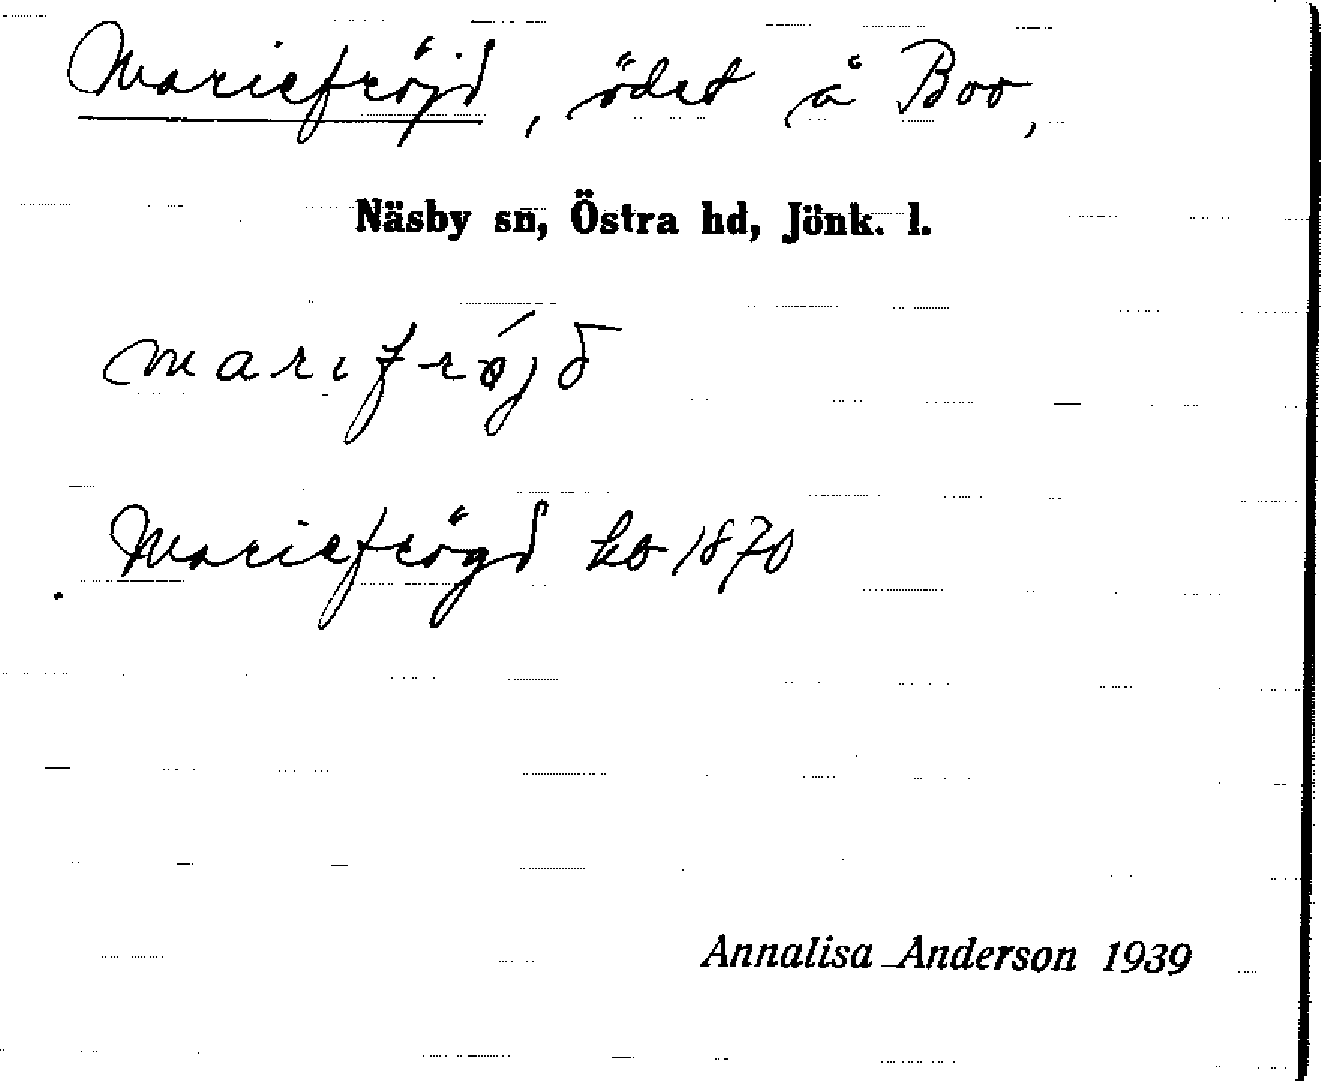 Mariefröjd, ödet å Boo,
Näsby sn, Östra hd, Jönk. l.
marifrǿjd
Mariefrögd kb 1870
Annalisa Anderson 1939